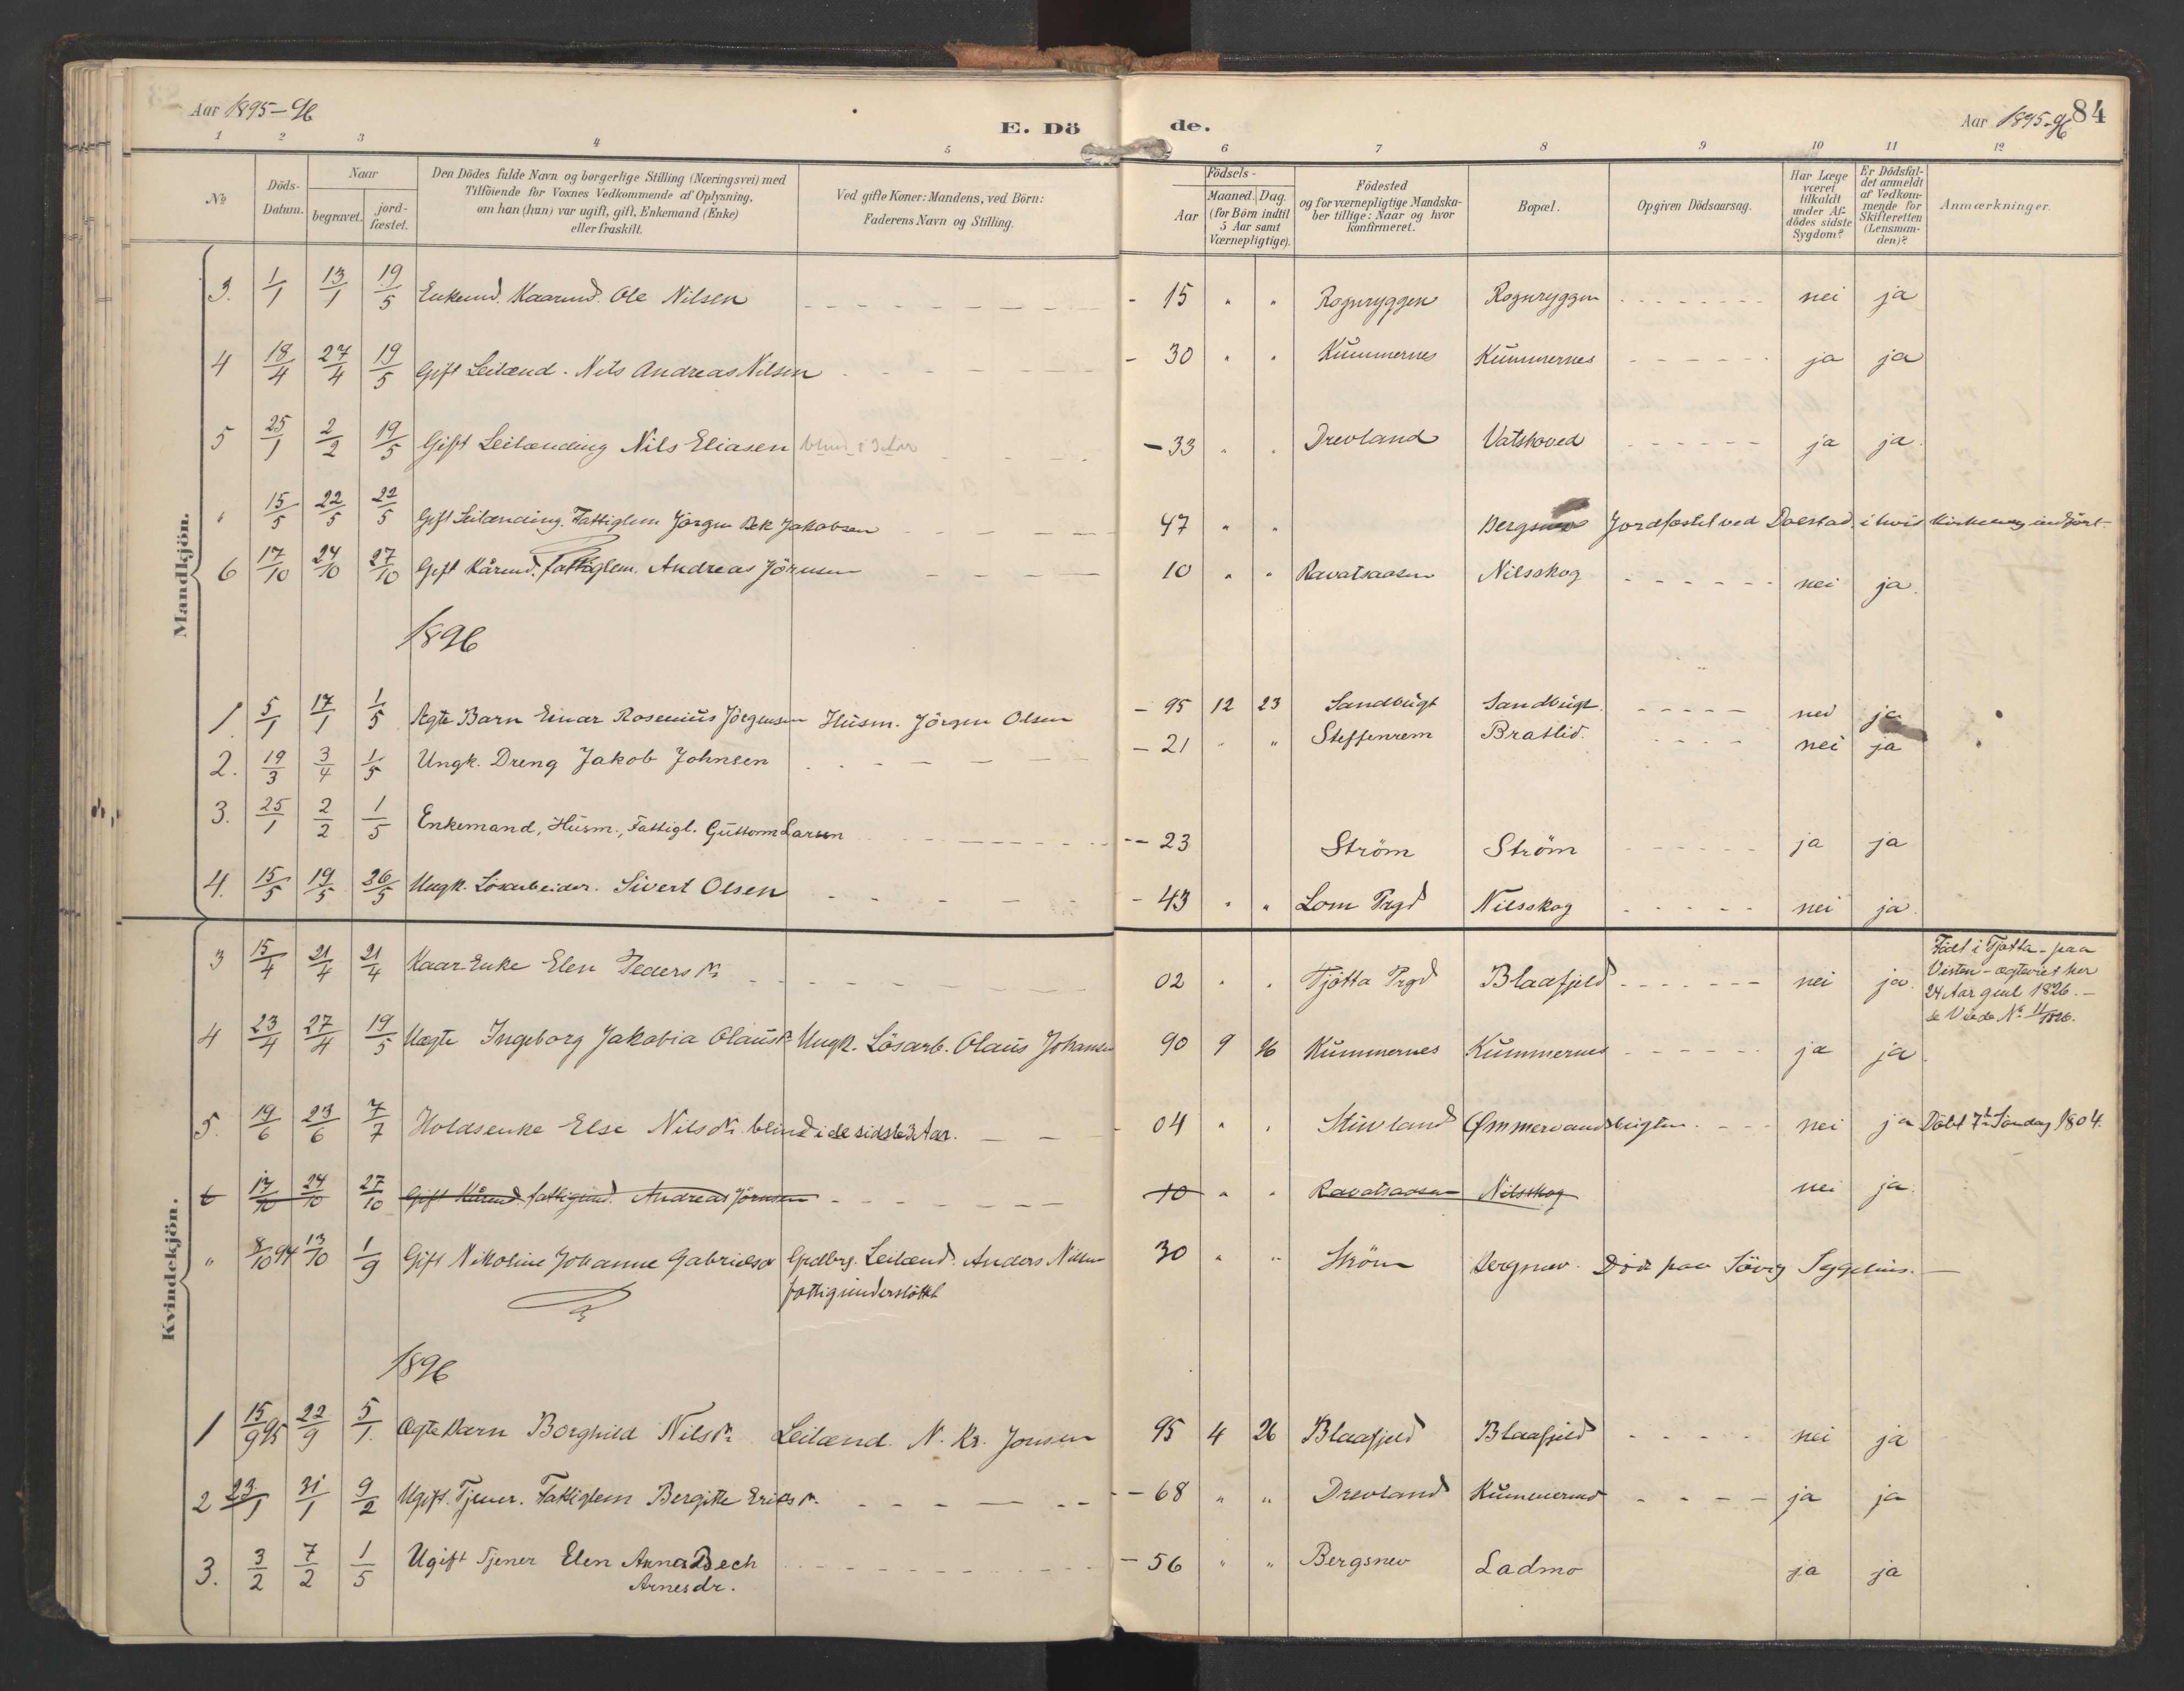 Aar 1895-96
E. Dö
de.
Aar 1895-96
84
1 2 3 4 5 6 7 8 9 10 11 12
№
Döds-Datum.
Naar
begravet.
jord-fæstet.
Den Dödes fulde Navn og borgerlige Stilling (Næringsvei) med
Tilföiende for Voxnes Vedkommende af Oplysning,
om han (hun) var ugift, gift, Enkemand (Enke)
eller fraskilt.
Ved gifte Koner: Mandens, ved Börn:
Faderens Navn og Stilling.
Födsels-
Aar
Maaned. Dag.
(for Börn indtil
5 Aar samt
Værnepligtige).
Födested
og for værnepligtige Mandska-
ber tillige: Naar og hvor
konfirmeret.
Bopæl.
Opgiven Dödsaarsag.
Har Læge
været
tilkaldt
under Af-
dödes sidste
Sygdom?
Er Dödsfal-
det anmeldt
af Vedkom-
mende for
Skifteretten
(Lensman-
den)?
Anmærkninger.
Mandkjön.
3. 1/1 13/1 19/5 Enkemd. Kaarmd. Ole Nilsen - 15 " " Rognryggen Rognryggen nei ja
4 18/4 27/4 19/5 Gift Leilænd. Nils Andreas Nilsen - 30 " " Kummernes Kummernes ja ja
5 25/1 2/2 19/5 Gift Leilænding Nils Eliasen blind i 3 Aar - 33 " " Drevland Vatshoved ja ja.
" 15/5 22/5 22/5 Gift Leilænding. Fattiglem Jörgen Bek Jakobsen 47 " " Bergsnev Jordfæstet ved Dolstad, i hvis Kirkebog indfört.
6 17/10 24/10 27/10 Gift Kårmd. fattiglem. Andreas Jörnsen 10 " " Ravatsaasen Nilsskog nei ja.
1896
1. 5/1 17/1 1/5 Ægte Barn Einar Rosenius Jörgensen Husm. Jörgen Olsen - 95 12 23 Sandbugt Sandbugt nei ja
2. 19/3 3/4 1/5 Ungk. Dreng Jakob Johnsen - 21 " " Steffenrem Bratlid. nei ja
3. 25/1 2/2 1/5 Enkemand, Husm., Fattigl. Guttorm Larsen -- 23 Ström Ström ja ja
4. 15/5 19/5 26/5 Ungk. Lösarbeider. Sivert Olsen - 43 " " Lom Prgd Nilsskog nei ja.
Kvindekjön.
3 15/4 21/4 21/4 Kaar Enke Elen Pedersdr. 02 " " Tjötta Prgd Blaafjeld nei ja.
Födt i Tjøtta - paa
Visten - ægteviet her
24 Aar gml 1826. -
se Viede No 11/1826.
4 23/4 27/4 19/5 Uægte Ingeborg Jakobia Olausdr. Ungk. Lösarb. Olaus Johansen 90 9 26 Kummernes Kummernes ja ja
5. 19/6 23/6 7/7 Holdsenke Else Nilsdr. blind i de sidste 3 Aar. 04 " " Stuvland Ømmervandsbugten nei ja Döbt 7de Söndag 1804.
6 17/10 24/10 27/10 Gift Kårmd. fattigund. Andreas Jörnsen 10 " " Ravatsaasen Nilsskog nei ja.
" 8/10 94 13/10 1/9 Gift Nikoline Johanne Gabrielsdr Grdbrg. Leilænd. Anders Nilsen 30 " " Ström Bergsnev. Död paa Sövig Sygehus.
fattigunderstöttet
1896
1 15/9 95 22/9 5/1. Ægte Barn Borghild Nilsdr. Leilænd. N. Kr. Jonsen 95 4 26 Blaafjeld Blaafjeld nei ja
2 23/1 31/1 9/2 Ugift. Tjener. Fattiglem Bergitte Eriksdr. - 68 " " Drevland Kummernes ja ja
3. 3/2 7/2 1/5 Ugift Tjener Elen Anna Bech - 56 " " Bergsnev Ladmo ja ja
Arnesdr.